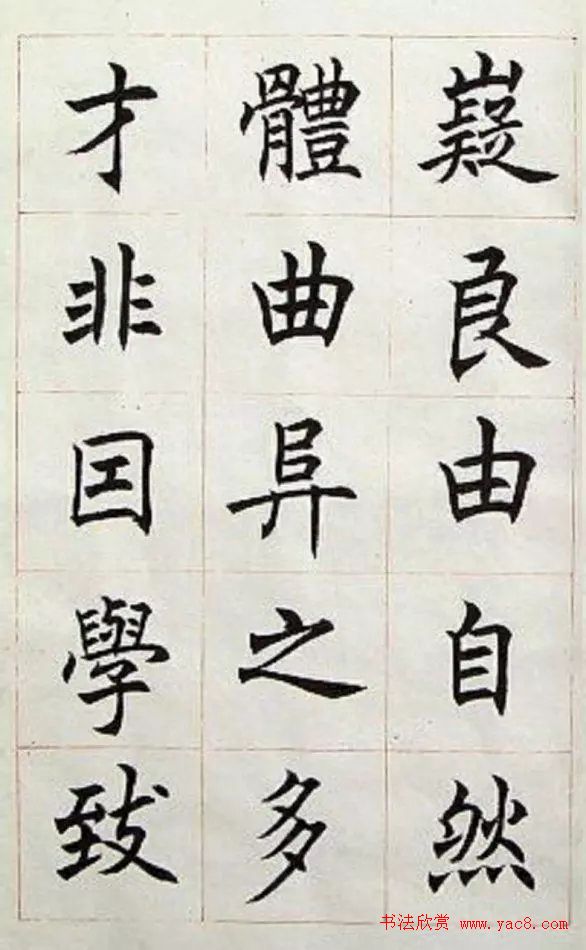 嶷良由自然
體曲异之多
才非囙學致
书法欣赏 www.yac8.com